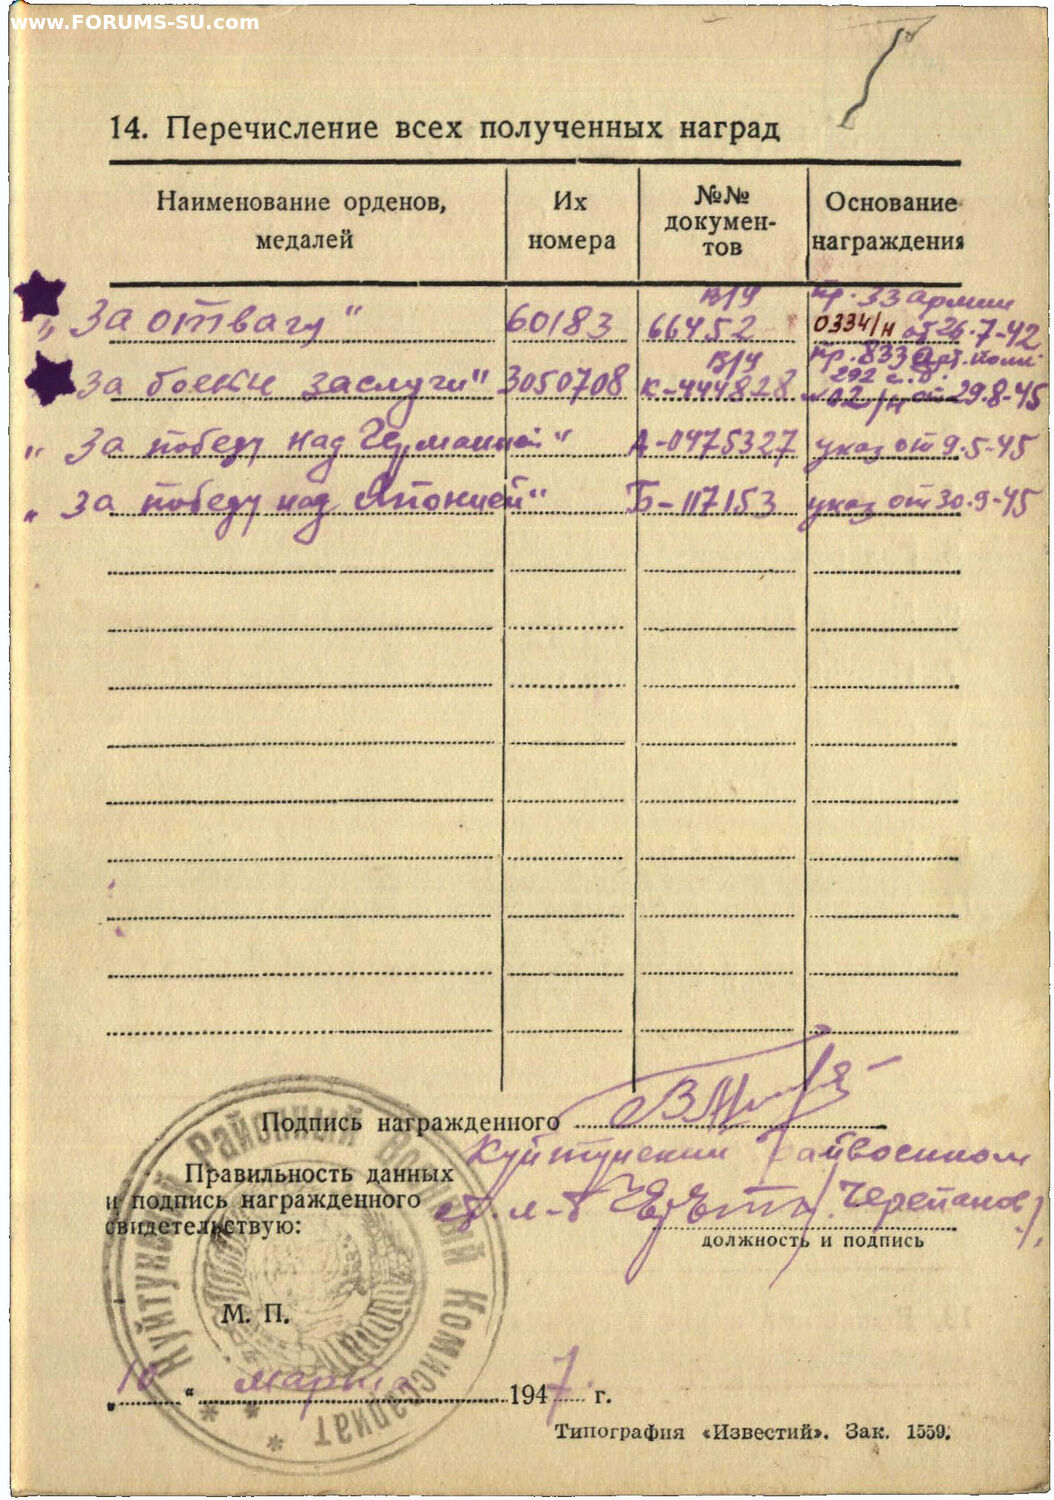 www.FORUMS-SU.com
14. Перечисление всех полученных наград
Наименование орденов, медалей
Их номера
№№ документов
Основание награждения
„За отвагу" 60183 в/у 66452 пр. 33 армии 0334/н от 26.7-42
За боевые заслуги" 3050708 в/у К-444828 пр. 833 арт. полк 292 с.д. №02/н от 29.8-45
„За победу над Германией" А-0475327 указ от 9.5-45
„За победу над Японией" Б-117153 указ от 30.9-45
Подпись награжденного
Куйтунский райвоенком
Правильность данных
и подпись награженного
свидетельствую:
ст. л-т Черепанов).
должность и подпись
М. П.
Куйтунский Районный Военный Комиссариат
„10" марта 1947 г.
Типография «Известий». Зак. 1559.